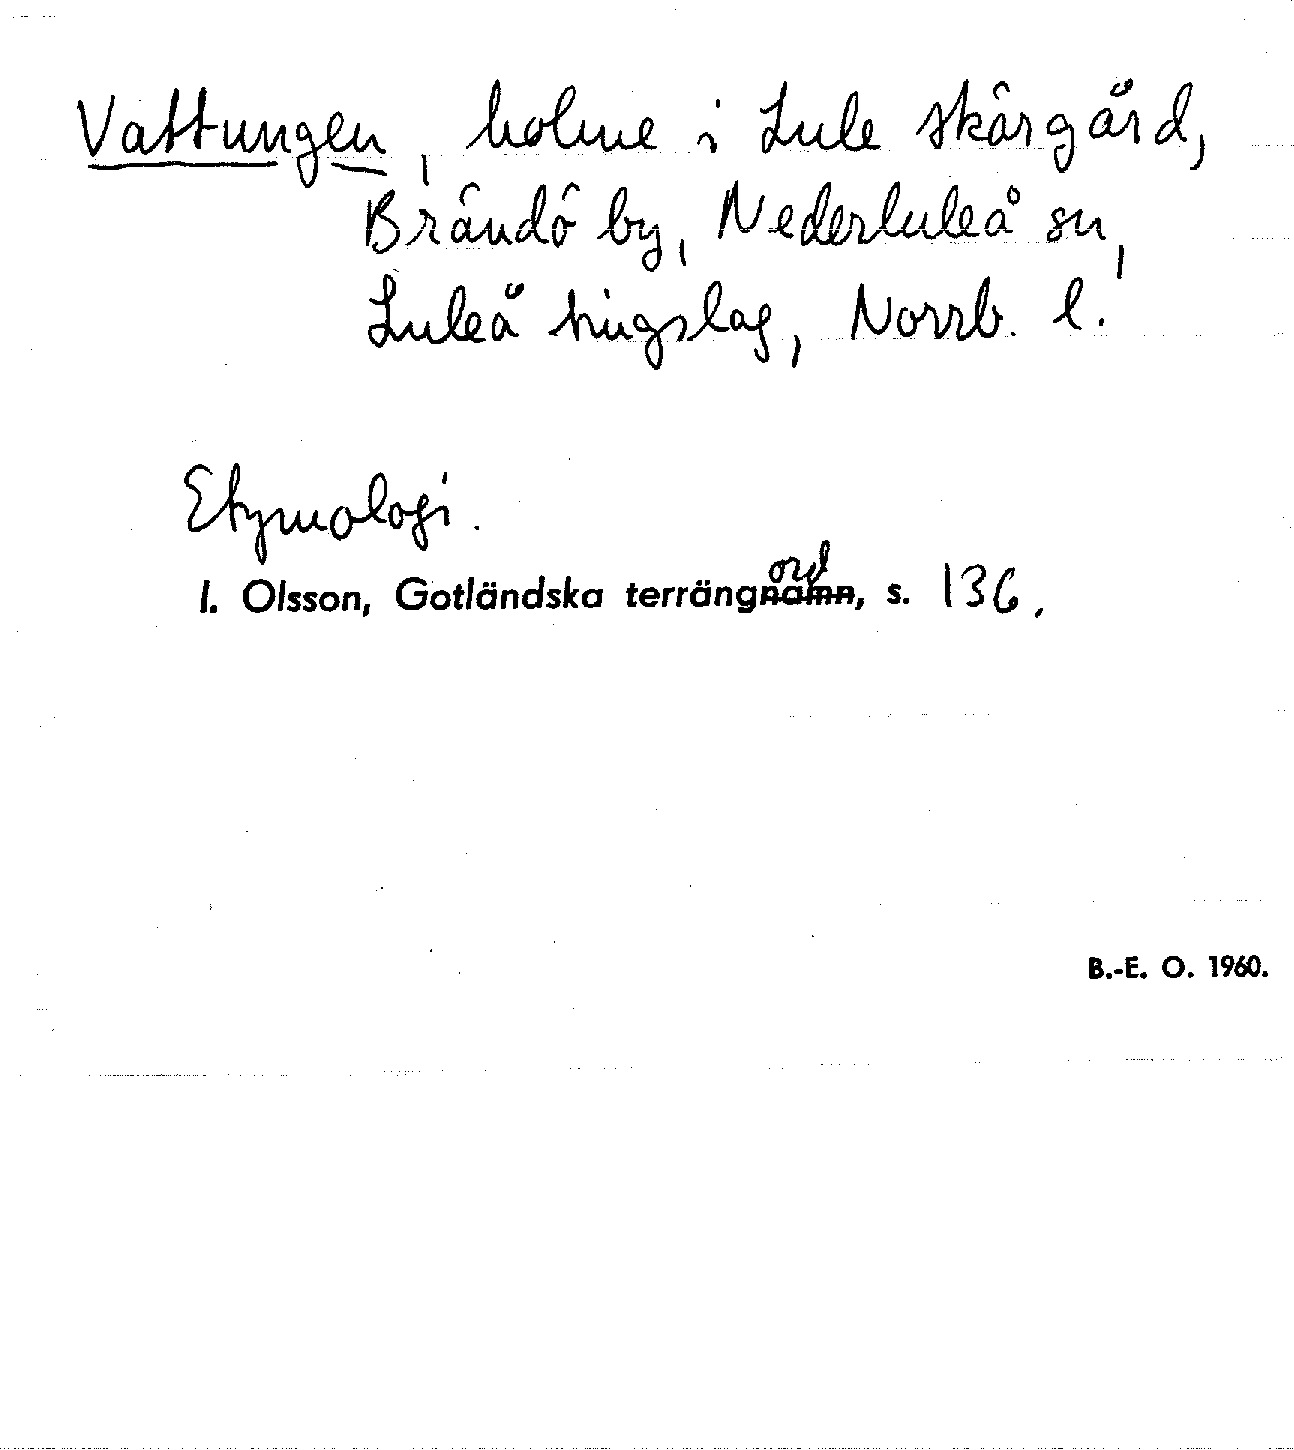 Vattungen, holme i Lule skärgård,
Brändö by, Nederluleå sn,
Luleå tingslag, Norrb. l.
Etymologi.
I. Olsson, Gotländska terrängord, s. 136.
B.-E. O. 1960.